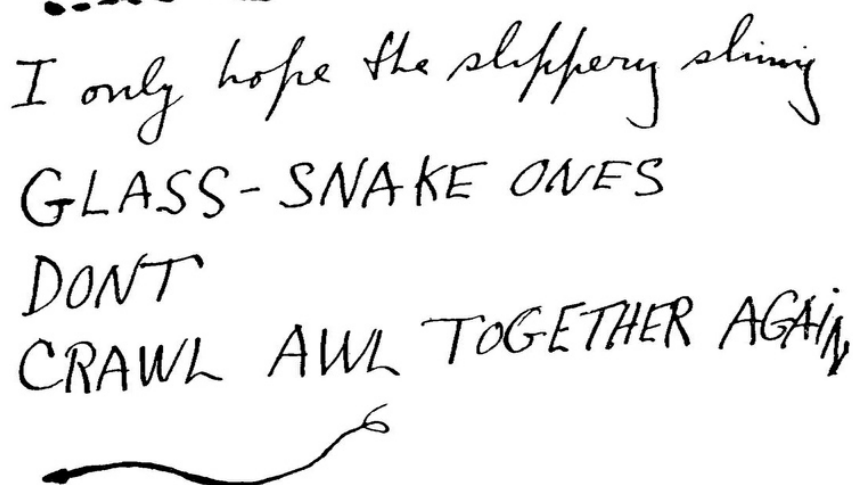 I only hope the slippery slimy
GLASS-SNAKE ONES
DONT
CRAWL AWL TOGETHER AGAIN